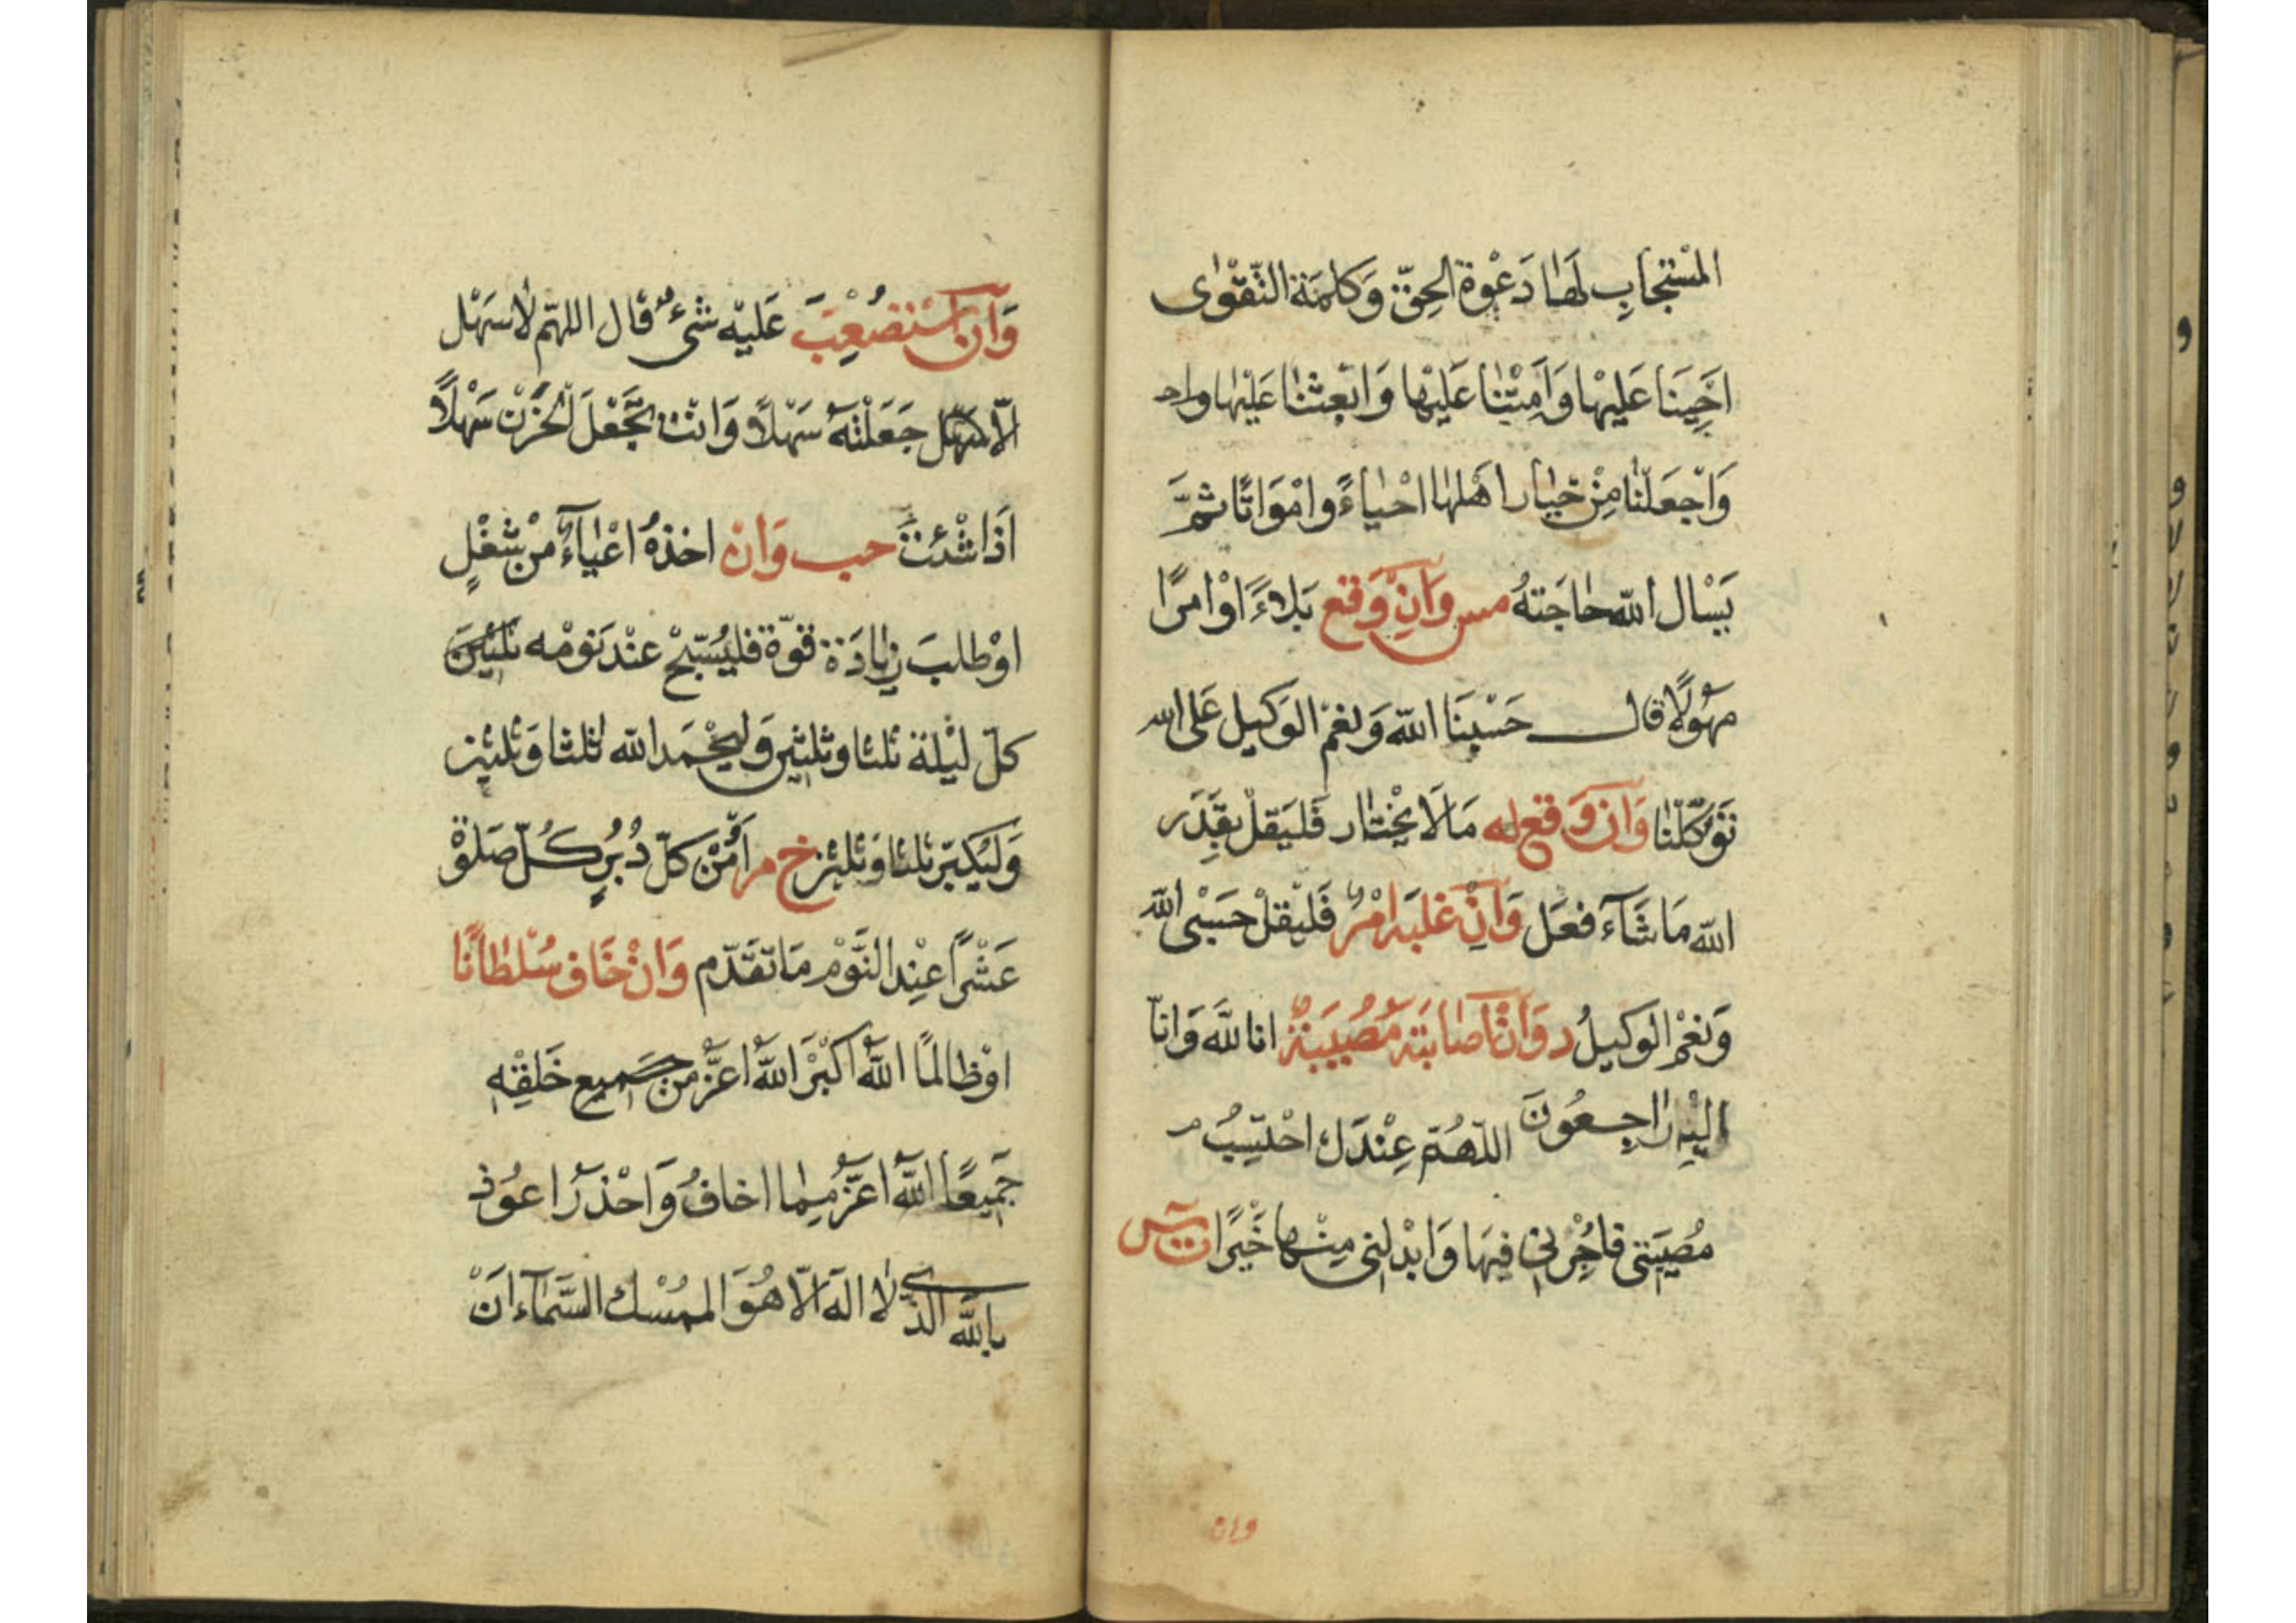 المُسْتَجَابِ لَهَا دَعْوَةُ الحَقِّ وَكَلِمَةُ التَّقْوٰى
اَحْيِنَا عَلَيْهَا وَاَمِتْنَا عَلَيْهَا وَابْعَثْنَا عَلَيْهَا
وَاجْعَلْنَا مِنْ خِيَارِ اَهْلِهَا اَحْيَاءً وَاَمْوَاتًا ثُمَّ
يَسْاَل اللّٰه حَاجَتَهُ مس وَاِنْ وَقَع بَلَاءً اَوْ اَمرًا
مَهُولًا قال حَسْبُنَا اللّٰه وَنِعْمَ الوَكِيل عَلَى الله
تَوَكَّلْنَا وَاِن وَقع له مَا لَا يَخْتَار فَلْيَقلْ بِقَدَرِ
اللّٰه مَا شَاءَ فعَل وَاِنْ غَلَبَه اَمْرٌ فَلْيَقلْ حَسْبِى اللّٰه
وَنِعْمَ الوَكِيلُ د وَاِنْ اَصَابَتْه مُصِيبَةٌ انا للّٰه وَانّا
اِلَيْهِ رَاجِعُونَ اللّٰهُمَّ عِنْدَكَ احْتَسِبُ
مُصِيبَتِى فَاْجُرْنِى فِيهَا وَابْدِلْنِى مِنْهَا خَيْرًا ت س
وان
وَاِن اسْتَصْعَبَ عَلَيْه شَىْءٌ قَال اللهمّ لَا سَهْل
اِلّا جَعَلْتَهُ سَهْلًا وَانْتَ تَجْعَلُ الْحَزَنَ سَهْلًا
اِذَا شِئْتَ حب وَاِنْ اخذهُ اعْيَاءٌ مِنْ شغْلٍ
اوْ طلَبَ زِيَادَة قوّة فليُسَبِّحْ عِنْد نَوْمه ثلثين
كلّ ليْلة ثلثا وثلثين وَليَحْمَد الله ثلثا وَثلثين
وَليُكَبِّر ثلثا وَثلثين خ م اَمِنْ كلّ دُبُرِ كُلِّ صَلوة
عَشْرًا عِنْد النَّوْم مَا تَقَدّم وَاِنْ خَاف سُلْطَانًا
اوْ ظَالمًا اللّٰهُ اكْبَرُ اللّٰهُ اعَزُّ مِنْ جَمِيع خَلْقِهِ
جَمِيعًا اللّٰهُ اعَزُّ مِمَّا اخَافُ وَاحْذَرُ اعُوذ
بِاللّٰه الّذِى لَا الهَ الّا هُوَ المُمْسِك السَّمَاءَ اَنْ